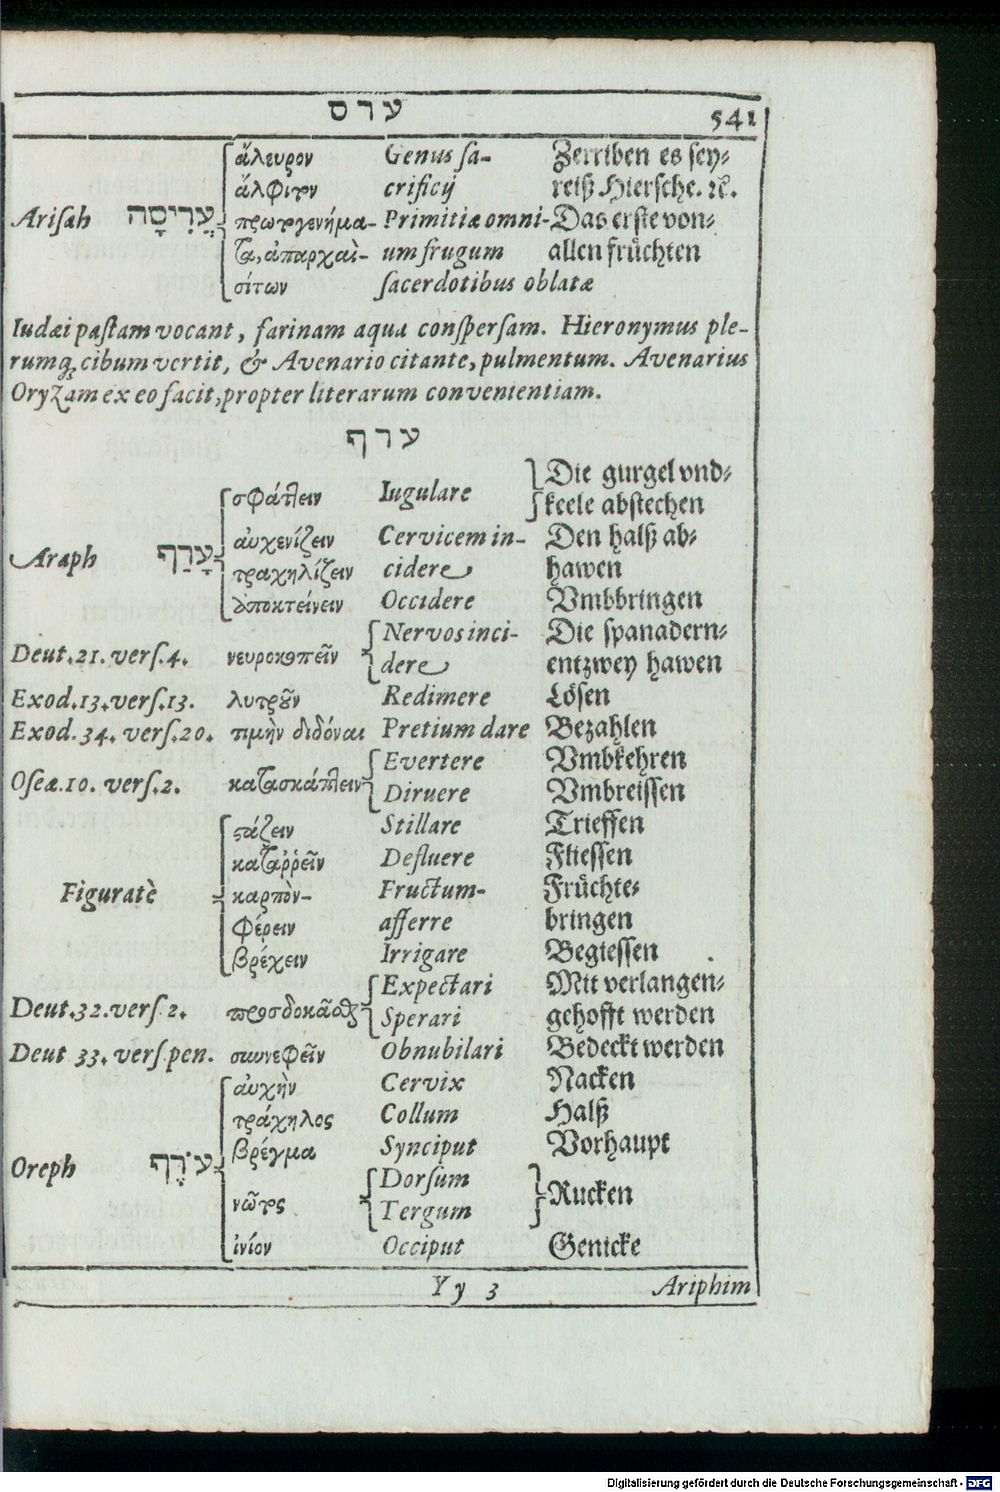 ערס 541
ἄλευρον Genus ſa- Zerriben es ſey⸗
ἄλφιτον crificij reiß Hierſche. ꝛc.
Ariſah עֲרִיסָה πρωτογενήμα- Primitiæ omni- Das erſte von⸗
τα, ἀπαρχαὶ- um frugum allen früchten
σίτων ſacerdotibus oblatæ
Iudæi paſtam vocant, farinam aqua conſperſam. Hieronymus ple-
rumq; cibum vertit, & Avenario citante, pulmentum. Avenarius
Oryzam ex eo facit, propter literarum convenientiam.
ערף
Die gurgel vnd⸗
σφάττειν Iugulare keele abſtechen
αὐχενίζειν Cervicem in- Den halß ab⸗
Araph עָרַף τραχηλίζειν cidere hawen
ἀποκτείνειν Occidere Vmbbringen
Nervos inci- Die ſpanadern⸗
Deut. 21. verſ. 4. νευροκοπεῖν dere entzwey hawen
Exod. 13. verſ. 13. λυτροῦν Redimere Löſen
Exod. 34. verſ. 20. τιμὴν διδόναι Pretium dare Bezahlen
Evertere Vmbkehren
Oſeæ. 10. verſ. 2. κατασκάπτειν Diruere Vmbreiſſen
στάζειν Stillare Trieffen
καταῤῥεῖν Defluere Flieſſen
Figuratè καρπὸν- Fructum- Früchte⸗
φέρειν afferre bringen
βρέχειν Irrigare Begieſſen
Expectari Mit verlangen⸗
Deut. 32. verſ. 2. προσδοκᾶσθαι Sperari gehofft werden
Deut 33. verſ. pen. συννεφεῖν Obnubilari Bedeckt werden
αὐχὴν Cervix Nacken
τράχηλος Collum Halß
βρέγμα Synciput Vorhaupt
Oreph עֹרֶף Dorſum
νῶτος Tergum Rucken
ἰνίον Occiput Genicke
Yy 3 Ariphim
Digitalisierung gefördert durch die Deutsche Forschungsgemeinschaft - DFG